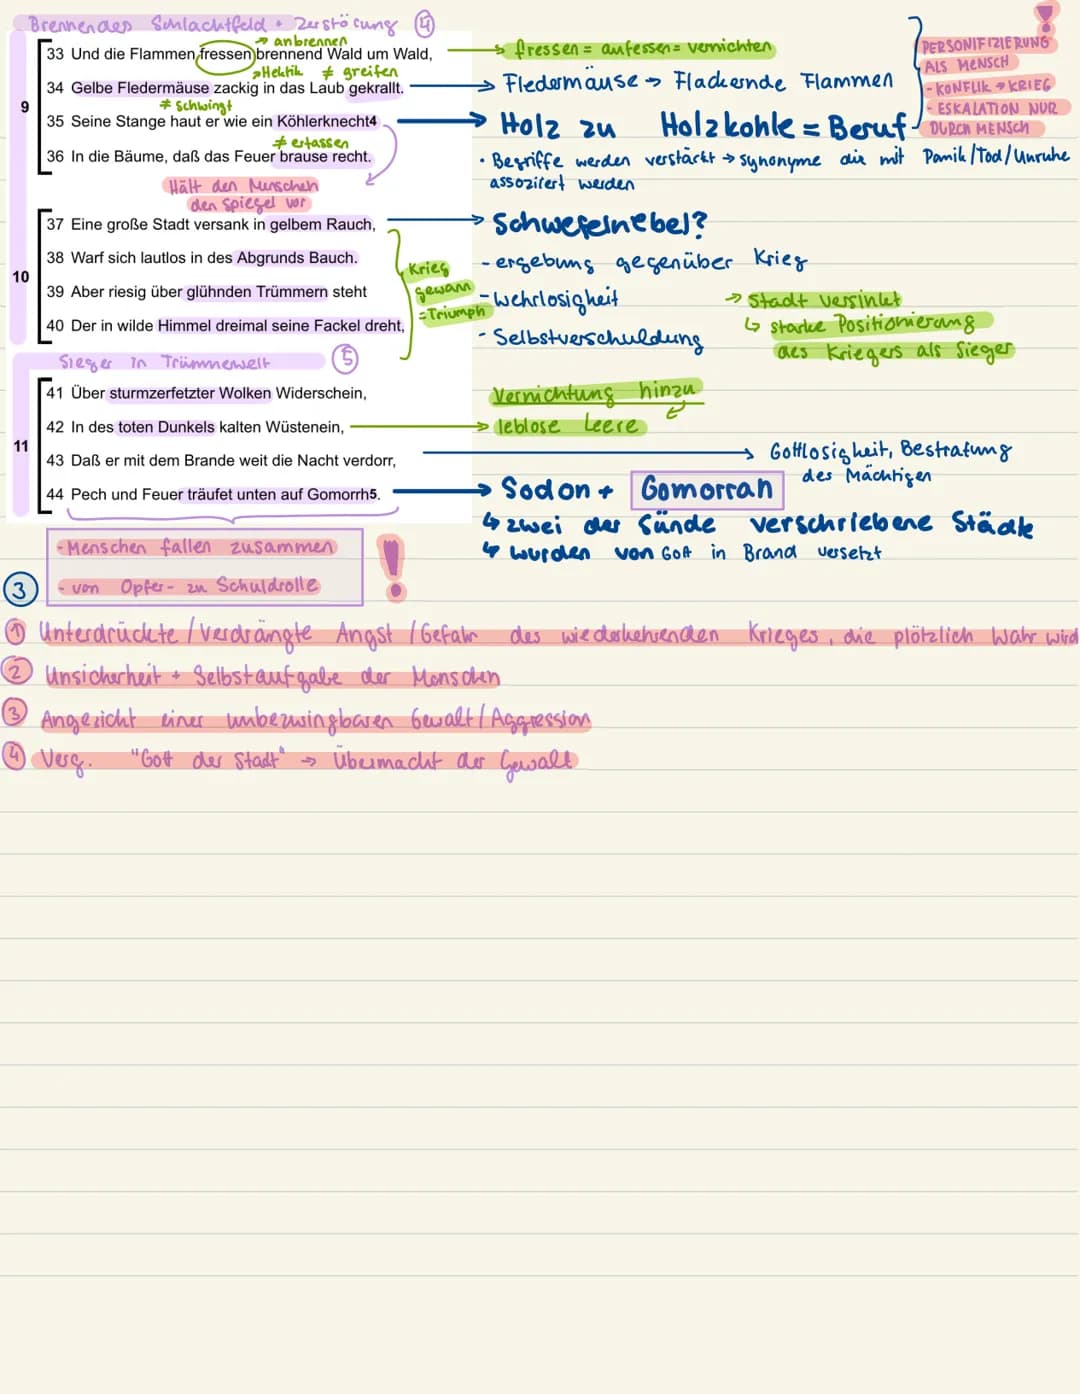 Brennendes Schlachtfeld + Zerstörung ④
→ anbrennen
33 Und die Flammen fressen brennend Wald um Wald,
→ fressen = aufessen = vernichten
→Hektik ≠ greifen
34 Gelbe Fledermäuse zackig in das Laub gekrallt.
→ Fledermäuse → Flackernde Flammen
≠ schwingt
9
35 Seine Stange haut er wie ein Köhlerknecht4
→ Holz zu Holzkohle = Beruf
≠ erfassen
36 In die Bäume, daß das Feuer brause recht.
• Begriffe werden verstärkt → synonyme die mit Panik/Tod/Unruhe
assoziiert werden
PERSONIFIZIERUNG
ALS MENSCH
- KONFLIK → KRIEG
- ESKALATION NUR
DURCH MENSCH
Hält den Menschen
den Spiegel vor
37 Eine große Stadt versank in gelbem Rauch,
→ Schwefelnebel?
38 Warf sich lautlos in des Abgrunds Bauch.
- ergebung gegenüber Krieg
10
39 Aber riesig über glühnden Trümmern steht
- Wehrlosigkeit
40 Der in wilde Himmel dreimal seine Fackel dreht,
- Selbstverschuldung
Krieg
gewann
=Triumph
→ Stadt versinkt
↳ starke Positionierung
des Kriegers als Sieger
Sieger in Trümmerwelt ⑤
41 Über sturmzerfetzter Wolken Widerschein,
Vernichtung hinzu
42 In des toten Dunkels kalten Wüstenein,
→ leblose Leere
11
43 Daß er mit dem Brande weit die Nacht verdorr,
→ Gottlosigkeit, Bestrafung
des Mächtigen
44 Pech und Feuer träufet unten auf Gomorrh5.
→ Sodon + Gomorrah
↳ zwei der Sünde verschriebene Städte
↳ wurden von Gott in Brand versetzt
- Menschen fallen zusammen
- von Opfer- zu Schuldrolle
③
① Unterdrückte / Verdrängte Angst / Gefahr des wiederkehrenden Krieges, die plötzlich wahr wird
② Unsicherheit + Selbstaufgabe der Menschen
③ Angesicht einer unbezwingbaren Gewalt / Aggression
④ Verg. "Gott der Stadt" → Übermacht der Gewalt